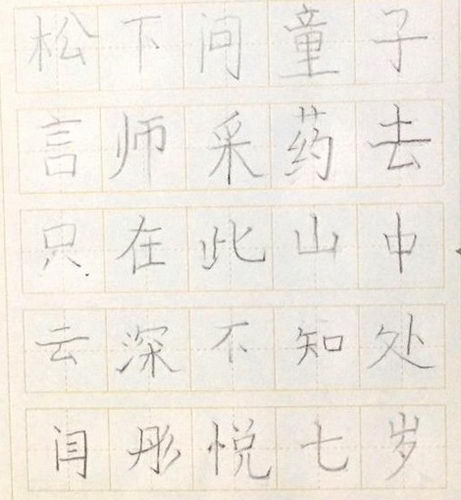 松下问童子
言师采药去
只在此山中
云深不知处
闫彤悦七岁